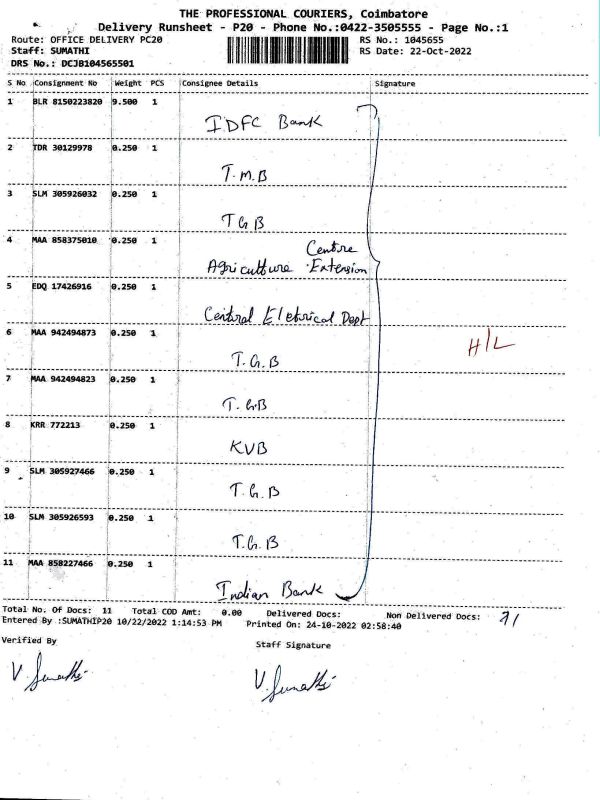 THE PROFESSIONAL COURIERS, Coimbatore
Delivery Runsheet - P20 - Phone No.:0422-3505555 - Page No.:1
Route: OFFICE DELIVERY PC20 RS No.: 1045655
Staff: SUMATHI RS Date: 22-Oct-2022
DRS No.: DCJB104565501
S No Consignment No Weight PCS Consignee Details Signature
1 BLR 8150223820 9.500 1
IDFC Bank
2 TDR 30129978 0.250 1
T.M.B
3 SLM 305926032 0.250 1
TGB
4 MAA 858375010 0.250 1
Centre
Agriculture Extension
5 EDQ 17426916 0.250 1
Central Eletrical Dept
6 MAA 942494873 0.250 1
H/L
T.G.B
7 MAA 942494823 0.250 1
T.GB
8 KRR 772213 0.250 1
KVB
9 SLM 305927466 0.250 1
T.G.B
10 SLM 305926593 0.250 1
T.G.B
11 MAA 858227466 0.250 1
Indian Bank
Total No. Of Docs: 11 Total COD Amt: 0.00 Delivered Docs: Non Delivered Docs:
Entered By :SUMATHIP20 10/22/2022 1:14:53 PM Printed On: 24-10-2022 02:58:40
Verified By Staff Signature
V. Sumathi V. Sumathi